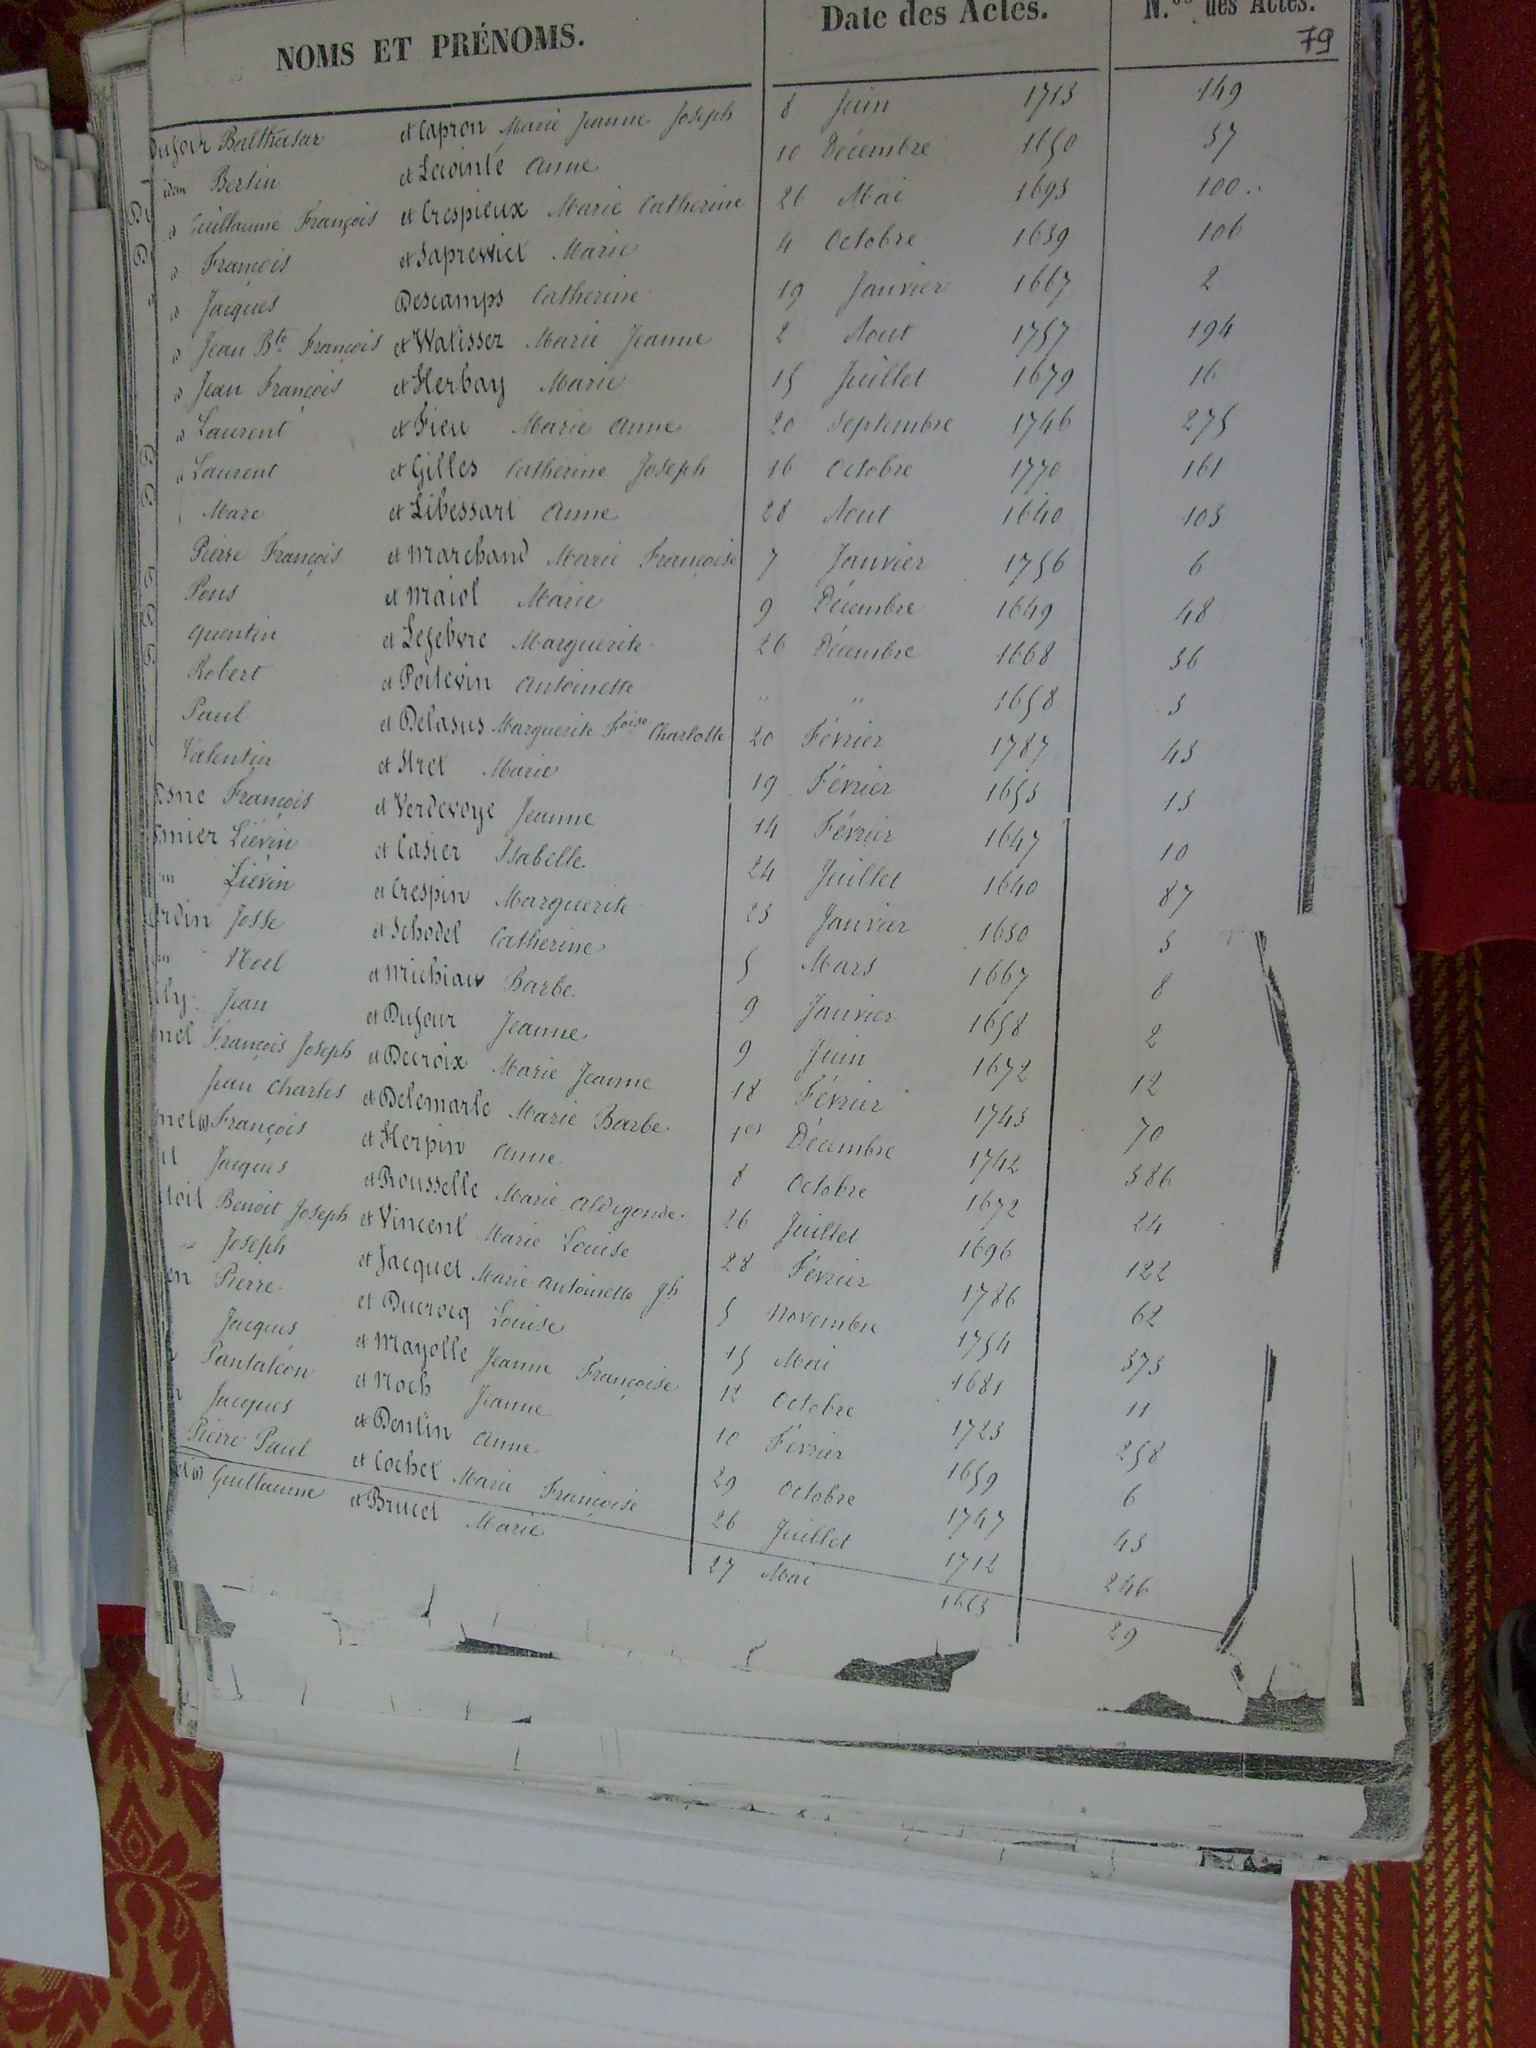 NOMS ET PRÉNOMS. Date des Actes. N.os des Actes.
79
Dufour Balthasar et Capron Marie Jeanne Joseph 8 Juin 1713 149
idem Bertin et Lecointe Anne 10 Décembre 1650 37
id Guillaume François et Crespieux Marie Catherine 26 Mai 1693 100
id François et Saprewiet Marie 4 Octobre 1639 106
id Jacques Descamps Catherine 19 Janvier 1667 2
id Jean Bte François et Watissez Marie Jeanne 2 Aout 1757 194
id Jean François et Herbay Marie 15 Juillet 1679 16
id Laurent et Fieu Marie Anne 20 Septembre 1746 275
id Laurent et Gilles Catherine Joseph 16 Octobre 1770 161
Marc et Libessart Anne 28 Aout 1640 103
Pierre François et Marchand Marie Françoise 7 Janvier 1756 6
Pons et Maiol Marie 9 Décembre 1649 48
Quentin et Lefebvre Marguerite 26 Décembre 1668 36
Robert et Poitevin Antoinette " " 1658 3
Paul et Delasus Marguerite Foise Charlotte 20 Février 1787 43
Valentin et Hret Marie 19 Février 1653 13
esne François et Verdevoye Jeanne 14 Février 1647 10
mier Liévin et Casier Isabelle 24 Juillet 1640 87
Liévin et Crespin Marguerite 23 Janvier 1630 3
rdin Josse et Schodel Catherine 5 Mars 1667 8
Noel et Michiau Barbe 9 Janvier 1658 2
ily Jean et Dufour Jeanne 9 Juin 1672 12
nel François Joseph et Decroix Marie Jeanne 18 Février 1743 70
Jean Charles et Delemarle Marie Barbe 1er Décembre 1742 386
nel François et Herpin Anne 8 Octobre 1672 24
Jacques et Rousselle Marie Aldegonde 26 Juillet 1696 122
toit Benoit Joseph et Vincent Marie Louise 28 Février 1786 62
Joseph et Jacquet Marie Antoinette Jh 5 Novembre 1754 373
en Pierre et Ducrocq Louise 15 Mai 1681 11
Jacques et Mayolle Jeanne Françoise 12 Octobre 1723 258
Pantaléon et Noch Jeanne 10 Février 1659 6
Jacques et Dentin Anne 29 Octobre 1747 43
Pierre Paul et Cochet Marie Françoise 26 Juillet 1712 246
Guillaume et Brucet Marie 27 Mai 1653 29